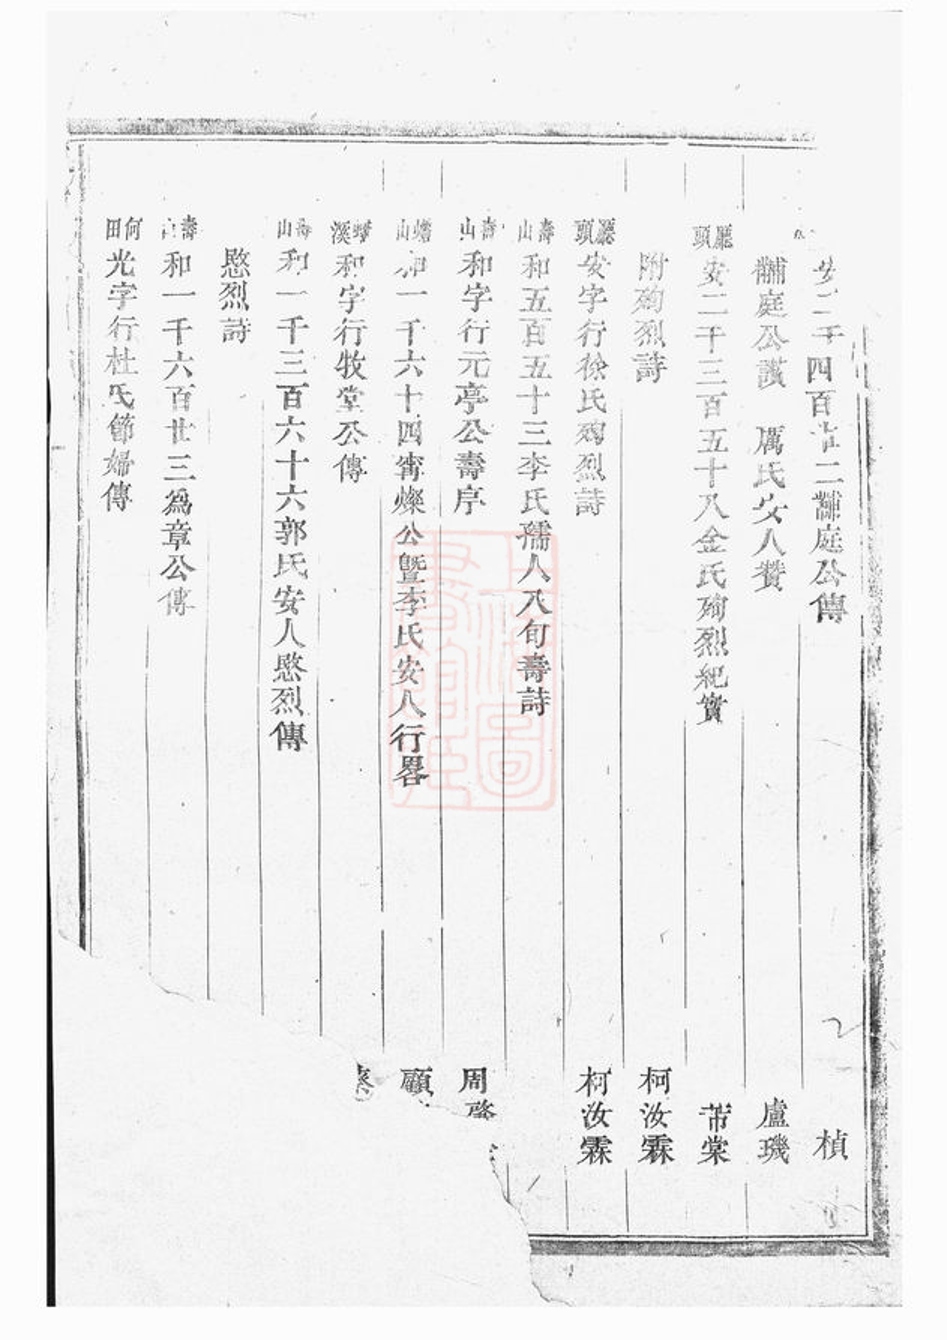 安二千四百廿二黼庭公傳 楨
黼庭公讚 厲氏安人贊 盧璣
廳頭 安二千三百五十八金氏殉烈紀實 芾棠
附殉烈詩 柯汝霖
廳頭 安字行徐氏殉烈詩 柯汝霖
壽山 和五百五十三李氏孺人八旬壽詩
壽山 和字行元亭公壽序 周啓
蟠山 和一千六十四甯燦公曁李氏安人行畧 顧
蟠溪 和字行牧堂公傳 蔡
壽山 和一千三百六十六郭氏安人愍烈傳
愍烈詩
壽山 和一千六百廿三爲章公傳
何田 光字行杜氏節婦傳
上海圖書館藏